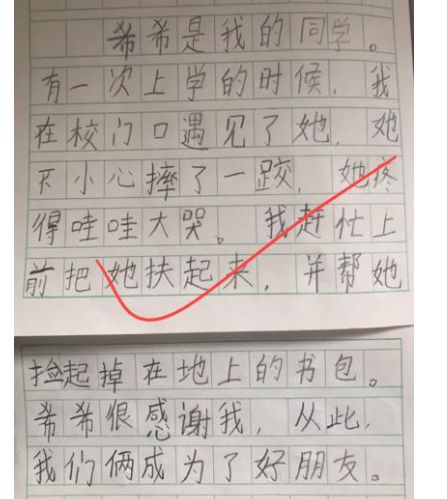 希希是我的同学。
有一次上学的时候，我
在校门口遇见了她，她
不小心摔了一跤，她疼
得哇哇大哭。我赶忙上
前把她扶起来，并帮她
捡起掉在地上的书包。
希希很感谢我，从此，
我们俩成为了好朋友。